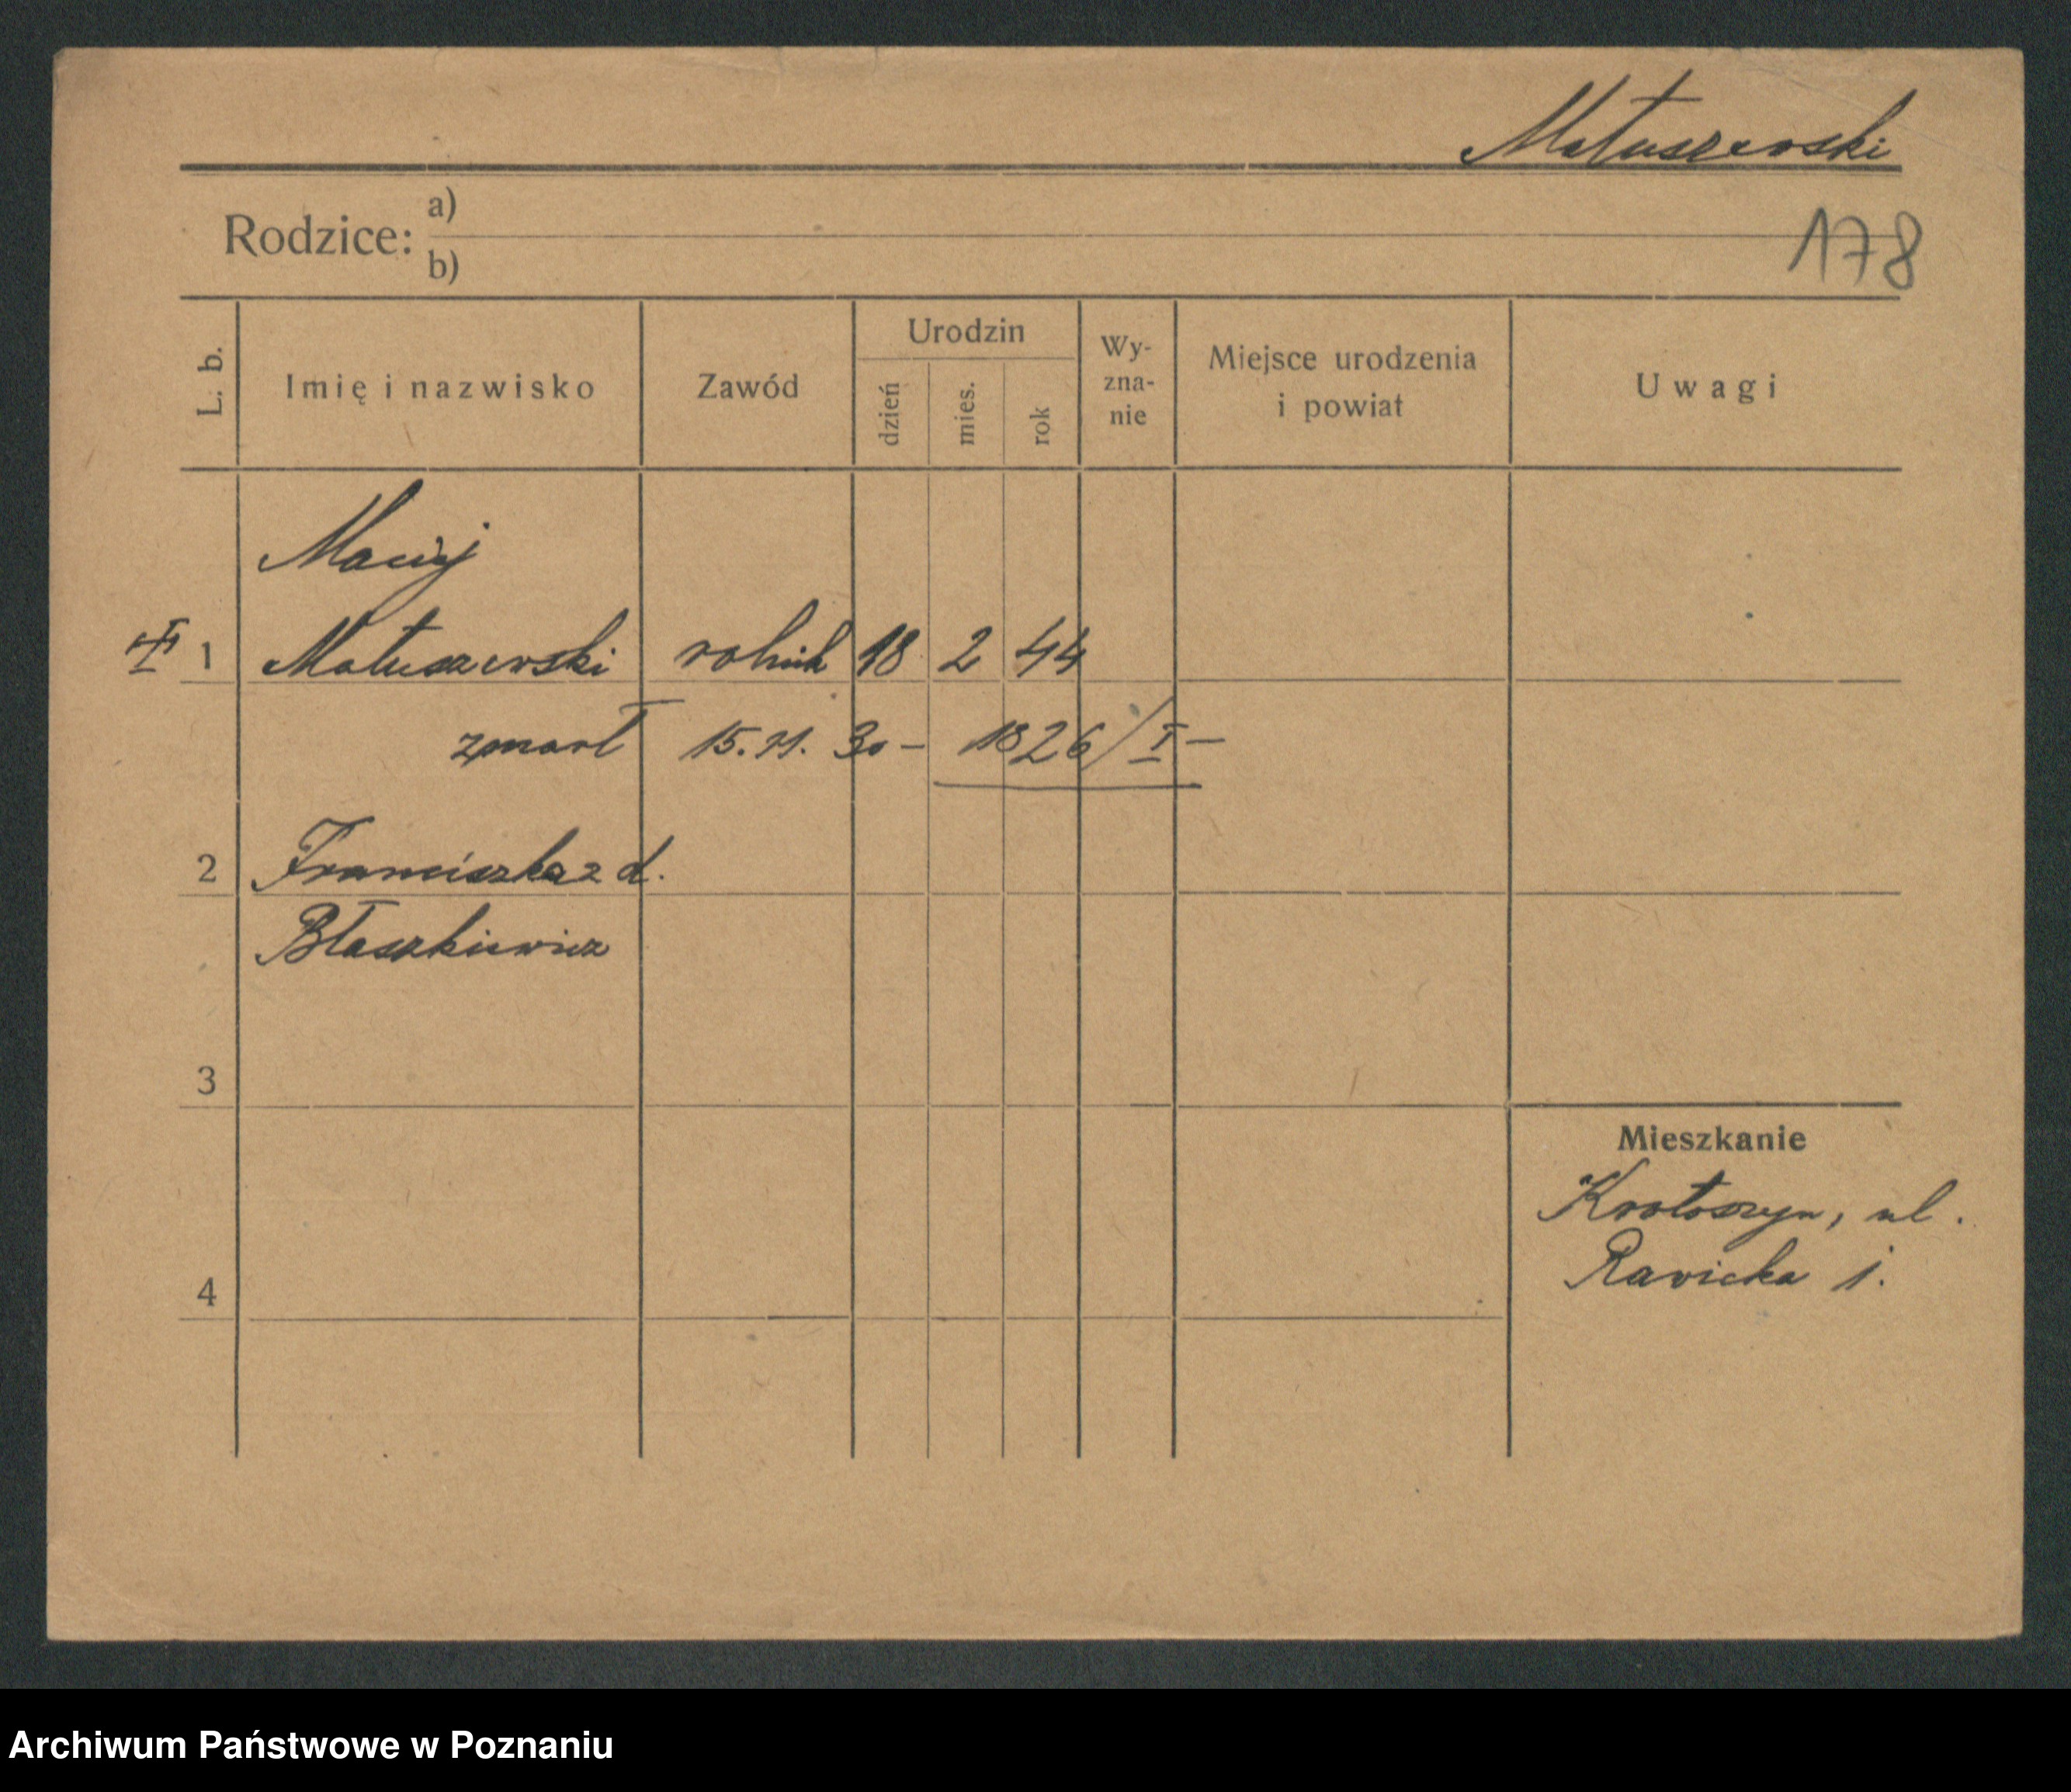 Matuszewski
Rodzice: a)
b)
178
L. b. Imię i nazwisko Zawód Urodzin dzień mies. rok Wy-zna-nie Miejsce urodzenia i powiat Uwagi
Maciej
1 Matuszewski rolnik 18 2 44
zmarł 15.11.30 – 1826/I –
2 Franciszka z d.
Błaszkiewicz
3
Mieszkanie
Krotoszyn, ul.
Rawicka 1.
4
Archiwum Państwowe w Poznaniu